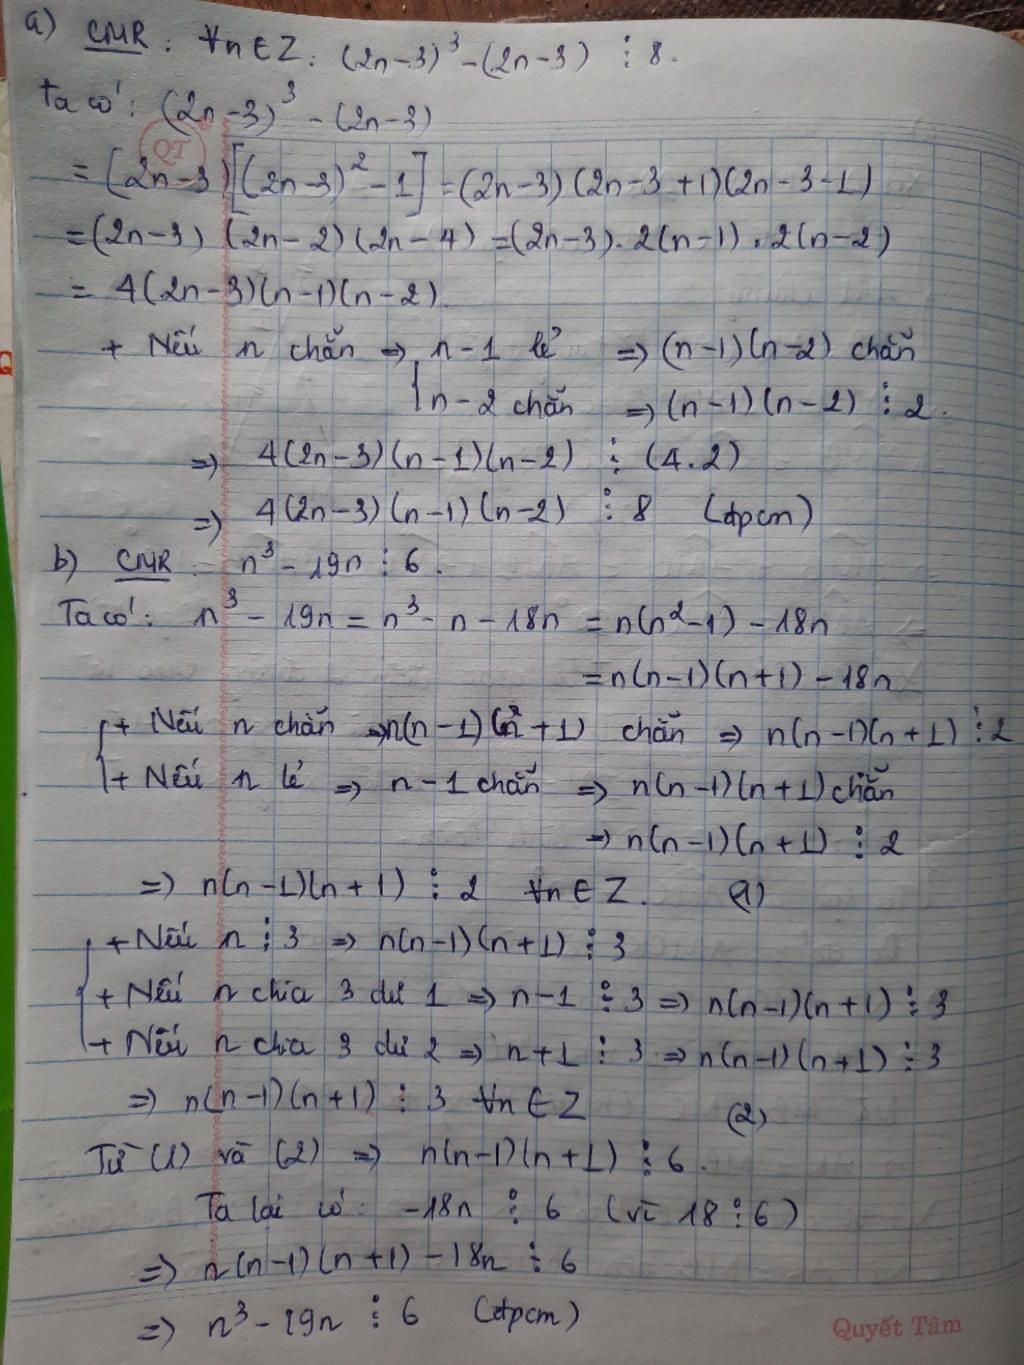 a) CMR : ∀n∈Z: (2n-3)³-(2n-3) ⋮ 8.
Ta có: (2n-3)³ - (2n-3)
QT
= (2n-3)[(2n-3)²-1] = (2n-3)(2n-3+1)(2n-3-1)
= (2n-3) (2n-2)(2n-4) = (2n-3).2(n-1).2(n-2)
= 4(2n-3)(n-1)(n-2).
+ Nếu n chẵn => { n-1 lẻ => (n-1)(n-2) chẵn
n-2 chẵn => (n-1)(n-2) ⋮ 2.
=> 4(2n-3)(n-1)(n-2) ⋮ (4.2)
=> 4(2n-3)(n-1)(n-2) ⋮ 8 (đpcm)
b) CMR : n³ - 19n ⋮ 6.
Ta có: n³ - 19n = n³ - n - 18n = n(n²-1) - 18n
= n(n-1)(n+1) - 18n
{ + Nếu n chẵn => n(n-1)(n+1) chẵn => n(n-1)(n+1) ⋮ 2
+ Nếu n lẻ => n-1 chẵn => n(n-1)(n+1) chẵn
=> n(n-1)(n+1) ⋮ 2
=> n(n-1)(n+1) ⋮ 2 ∀n∈Z. (1)
{ + Nếu n ⋮ 3 => n(n-1)(n+1) ⋮ 3
+ Nếu n chia 3 dư 1 => n-1 ⋮ 3 => n(n-1)(n+1) ⋮ 3
+ Nếu n chia 3 dư 2 => n+1 ⋮ 3 => n(n-1)(n+1) ⋮ 3
=> n(n-1)(n+1) ⋮ 3 ∀n∈Z (2)
Từ (1) và (2) => n(n-1)(n+1) ⋮ 6.
Ta lại có: -18n ⋮ 6 (vì 18 ⋮ 6)
=> n(n-1)(n+1) - 18n ⋮ 6
=> n³ - 19n ⋮ 6 (đpcm)
Quyết Tâm